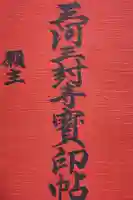 三河三封寺寶印帖
願主